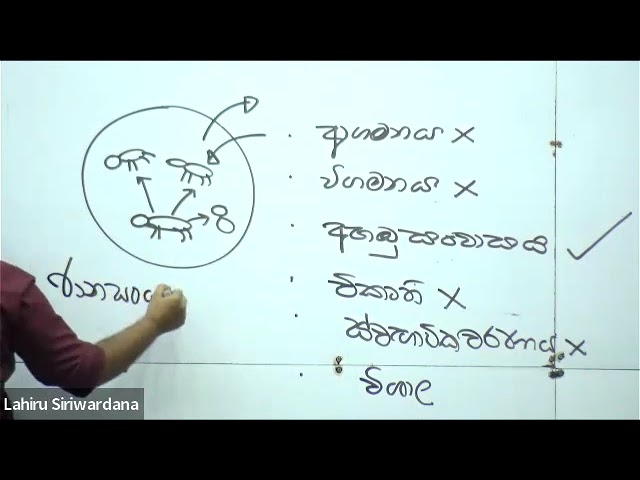 ආගමනය ×
විගමනය ×
අහඹු සංවාසය ✓
විකෘති ×
ස්වභාවිකවරණය ×
විශාල
Lahiru Siriwardana